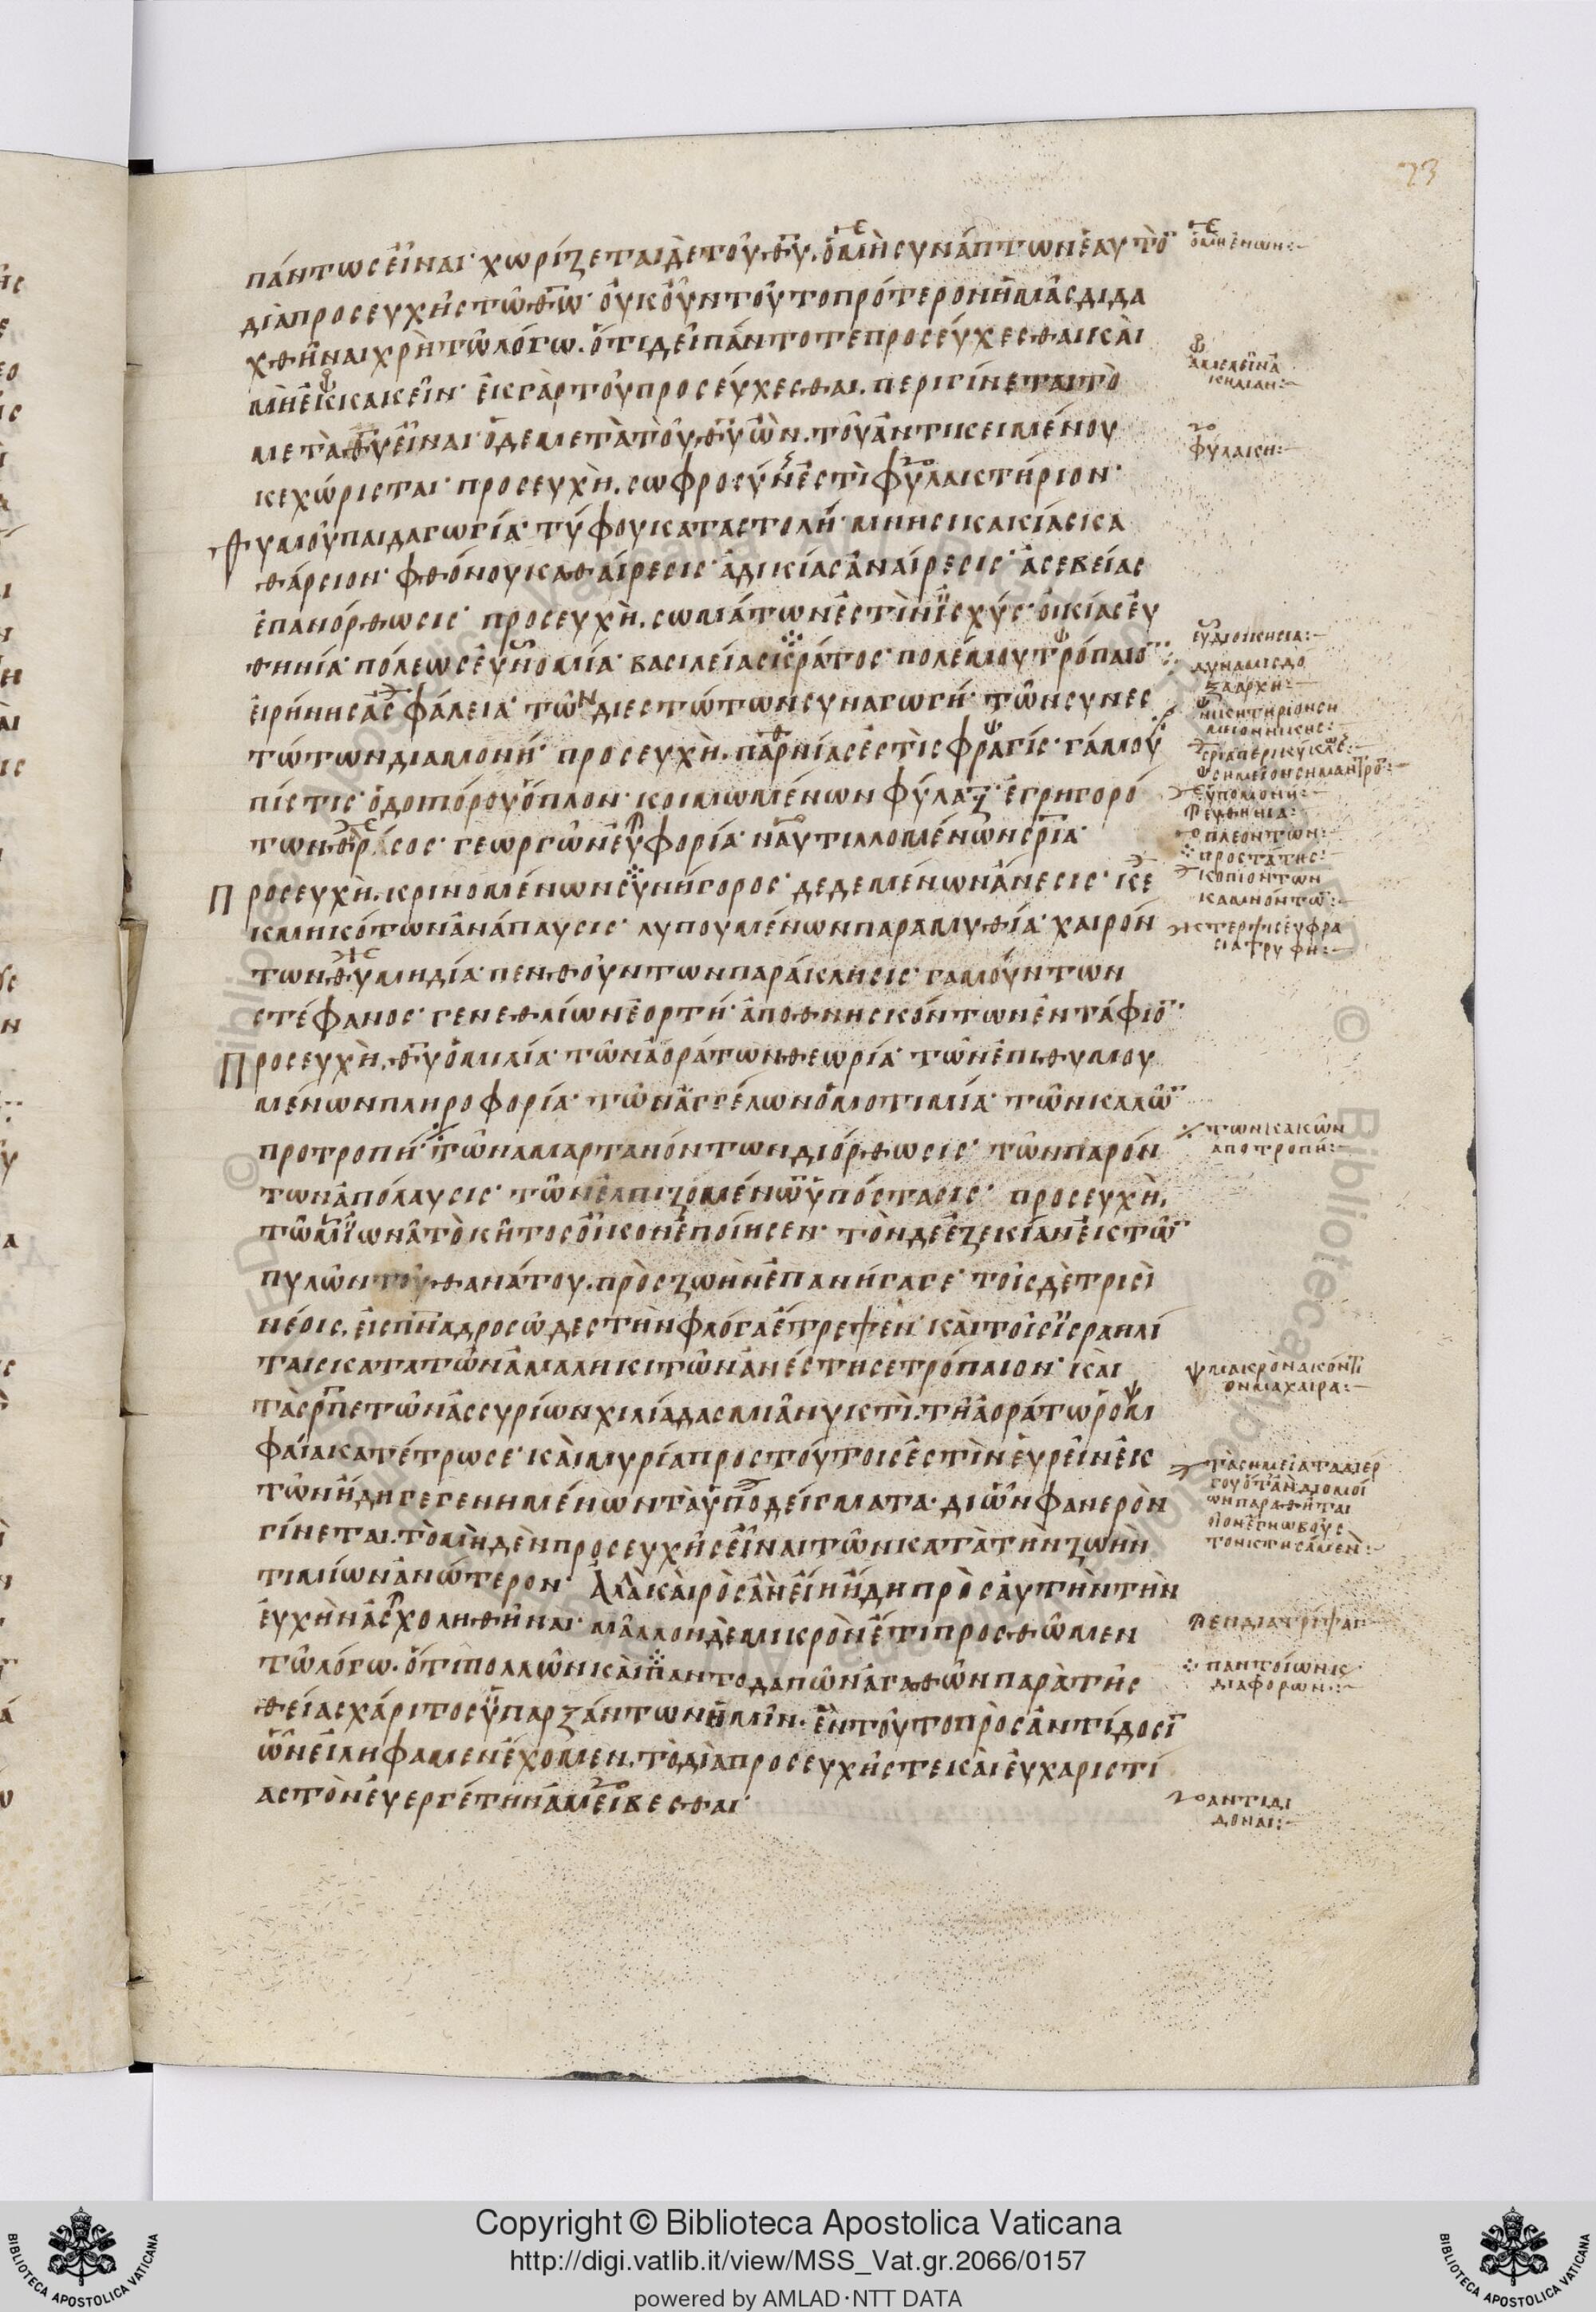 73
πάντως εἶναι· χωρίζεται δὲ τοῦ θ̅υ̅. ὁ μὴ συνάπτων ἑαυτὸ̅
διὰ προσευχῆς τῶ θ̅ω̅· οὐκοῦν τοῦτο πρότερον ἡμᾶς διδα
χθῆναι χρὴ τῶ λόγω. ὅτι δεῖ πάντοτε προσεύχεσθαι καὶ
μὴ ἐκκακεῖν· ἐκ γὰρ τοῦ προσεύχεσθαι. περιγίνεται τὸ
μετὰ θ̅υ̅ εἶναι· ὁ δὲ μετὰ τοῦ θ̅υ̅ ὢν. τοῦ ἀντικειμένου
κεχώρισται· προσευχὴ. σωφροσύνης ἐστὶ φυλακτήριον·
θυμοῦ παιδαγωγία· τύφου καταστολή· μνησικακίας κα
θάρσιον· φθόνου καθαίρεσις· ἀδικίας ἀναίρεσις· ἀσεβείας
ἐπανόρθωσις· προσευχὴ. σωμάτων ἐστὶν ἰσχύς· οἰκίας εὐ
θηνία· πόλεως εὐνομία· βασιλείας κράτος· πολέμου τρόπαιο̅·
εἰρήνης ἀσφάλεια· τῶν διεστώτων συναγωγή· τῶν συνεσ
τώτων διαμονή· προσευχὴ. παρθνίας ἐστὶ σφραγίς· γάμου
πίστις· ὁδοιπόρου ὅπλον· κοιμωμένων φύλαξ· ἐγρηγορό
των θάρσος· γεωργῶν εὐφορία· ναυτιλλομένων σ̅ρ̅ία·
Προσευχὴ. κρινομένων συνήγορος· δεδεμένων ἄνεσις· κε
κμηκότων ἀνάπαυσις· λυπουμένων παραμυθία· χαιρόν
των θυμηδία· πενθούντων παράκλησις· γαμούντων
στέφανος· γενεθλίων ἑορτή· ἀποθνησκόντων ἐντάφιο̅·
Προσευχὴ. θ̅υ̅ ὁμιλία· τῶν ἀοράτων θεωρία· τῶν ἐπιθυμου
μένων πληροφορία· τῶν ἀγγέλων ὁμοτιμία· τῶν καλῶ̅
προτροπή· τῶν ἁμαρτανόντων διόρθωσις· τῶν παρόν
των ἀπόλαυσις· τῶν ἐλπιζομένω̅ ὑπόστασις· προσευχὴ.
τῶ μ̅ ἰωνᾶ τὸ κῆτος οἶκον ἐποίησεν· τὸν δὲ ἐζεκίαν ἐκ τῶ̅
πυλῶν τοῦ θανάτου. πρὸς ζωὴν ἐπανήγαγε· τοῖς δὲ τρισὶ
νέοις. εἰς π̅ν̅α̅ δροσῶδες τὴν φλόγα ἔτρεψεν· καὶ τοῖς ἰσραηλί
ταις κατὰ τῶν ἀμαληκιτῶν ἀνέστησε τρόπαιον· καὶ
τὰς ρ̅π̅ε̅ τῶν ἀσσυρίων χιλιάδας μιᾶ νυκτὶ. τῆ ἀοράτω ρομ
φαία κατέτρωσε· καὶ μυρία πρὸς τούτοις ἐστὶν εὑρεῖν ἐκ
τῶν ἤδη γεγενημένων τὰ ὑποδείγματα· δι ὧν φανερὸν
γίνεται. τὸ μηδὲν προσευχῆς εἶναι τῶν κατὰ τὴν ζωὴν
τιμίων ἀνώτερον· Ἀλλὰ καιρὸς ἂν εἴη ἤδη πρὸς αὐτὴν τὴν
εὐχὴν ἀσχοληθῆναι· μᾶλλον δὲ μικρὸν ἔτι προσθῶμεν
τῶ λόγω. ὅτι πολλῶν καὶ παντοδαπῶν ἀγαθῶν παρὰ τῆς
θείας χάριτος ὑπαρξάντων ἡμῖν. ἓν τοῦτο πρὸς ἀντίδοσι̅
ὧν εἰλήφαμεν ἔχομεν. τὸ διὰ προσευχῆς τε καὶ εὐχαριστί
ας τὸν εὐεργέτην ἀμείβεσθαι·
ὁ μὴ ἑνων:-
ἀμελεῖν ἢ
φυλακή:-
εὐδιοικησία:-
δυναμις δό
ξα ἀρχή:-
νικητήριον ση
μεῖον νίκης:-
ψ σημεῖον σημαντρο̅:-
ὑπομονή:-
εὐθηνία:-
πλεόντων:-
προστάτης:-
κοπιόντων
καμνόντω̅:-
τέρψις εὐφρα
σία τρυφή:-
τῶν κακῶν
ἀποτροπή:-
ψ μακρὸν ἀκόντι
ον μάχαιρα:-
ἐνδιατρίψαι:-
παντοίων κ
διαφόρων:-
ἀντιδι
δόναι:-
Copyright © Biblioteca Apostolica Vaticana
http://digi.vatlib.it/view/MSS_Vat.gr.2066/0157
powered by AMLAD·NTT DATA
BIBLIOTECA APOSTOLICA VATICANA
BIBLIOTECA APOSTOLICA VATICANA